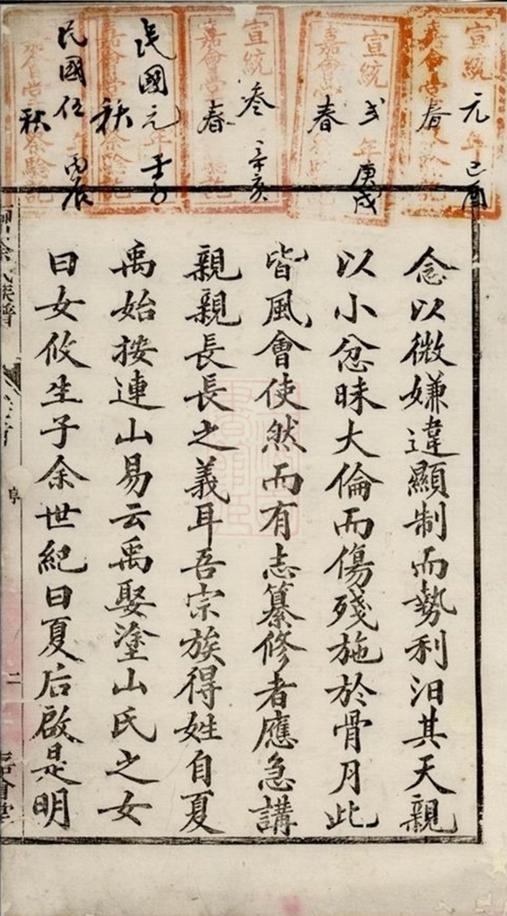 宣統元年己酉
嘉會堂春祭驗記
宣統弍年庚戌
嘉會堂春祭驗記
宣統叁年辛亥
嘉會堂春祭驗記
民國元年壬子
嘉會堂秋祭驗記
民國伍年丙辰
嘉會堂秋祭驗記
念以微嫌違顯制而勢利汨其天親
以小忿昧大倫而傷殘施於骨月此
皆風會使然而有志纂修者應急講
親親長長之義耳吾宗族得姓自夏
禹始按連山易云禹娶塗山氏之女
曰女攸生子余世紀曰夏后啟是明
余氏族譜
序
二
嘉會堂